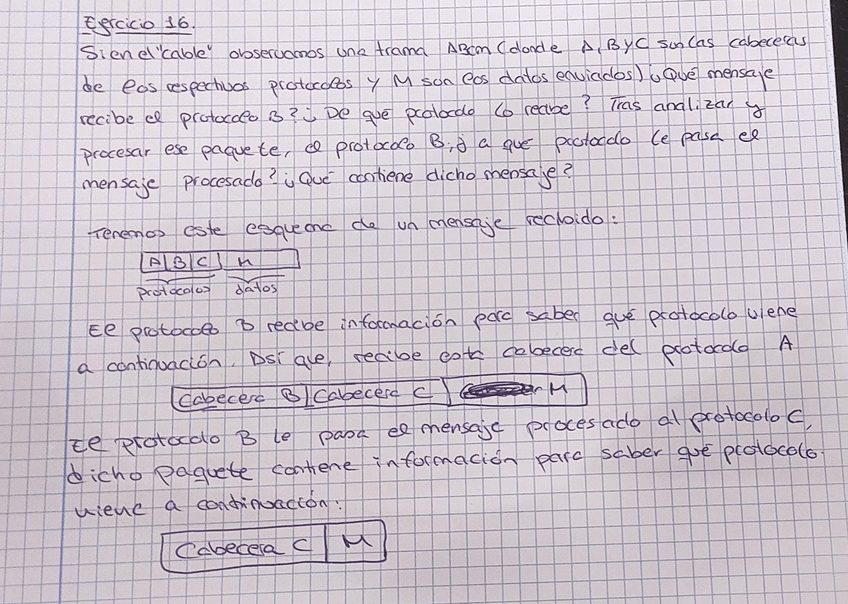 Ejercicio 16.
Si en el "cable" observamos una trama ABCM (donde A, B y C son las cabeceras
de los respectivos protocolos y M son los datos enviados) ¿Qué mensaje
recibe el protocolo B? ¿De qué protocolo lo recibe? Tras analizar y
procesar ese paquete, el protocolo B, ¿a qué protocolo le pasa el
mensaje procesado? ¿Qué contiene dicho mensaje?
Tenemos este esquema de un mensaje recibido:
A B C M
protocolos datos
El protocolo B recibe información para saber qué protocolo viene
a continuación. Así que, recibe esta cabecera del protocolo A
Cabecera B Cabecera C M
El protocolo B le pasa el mensaje procesado al protocolo C,
dicho paquete contiene información para saber qué protocolo
viene a continuación:
Cabecera C M